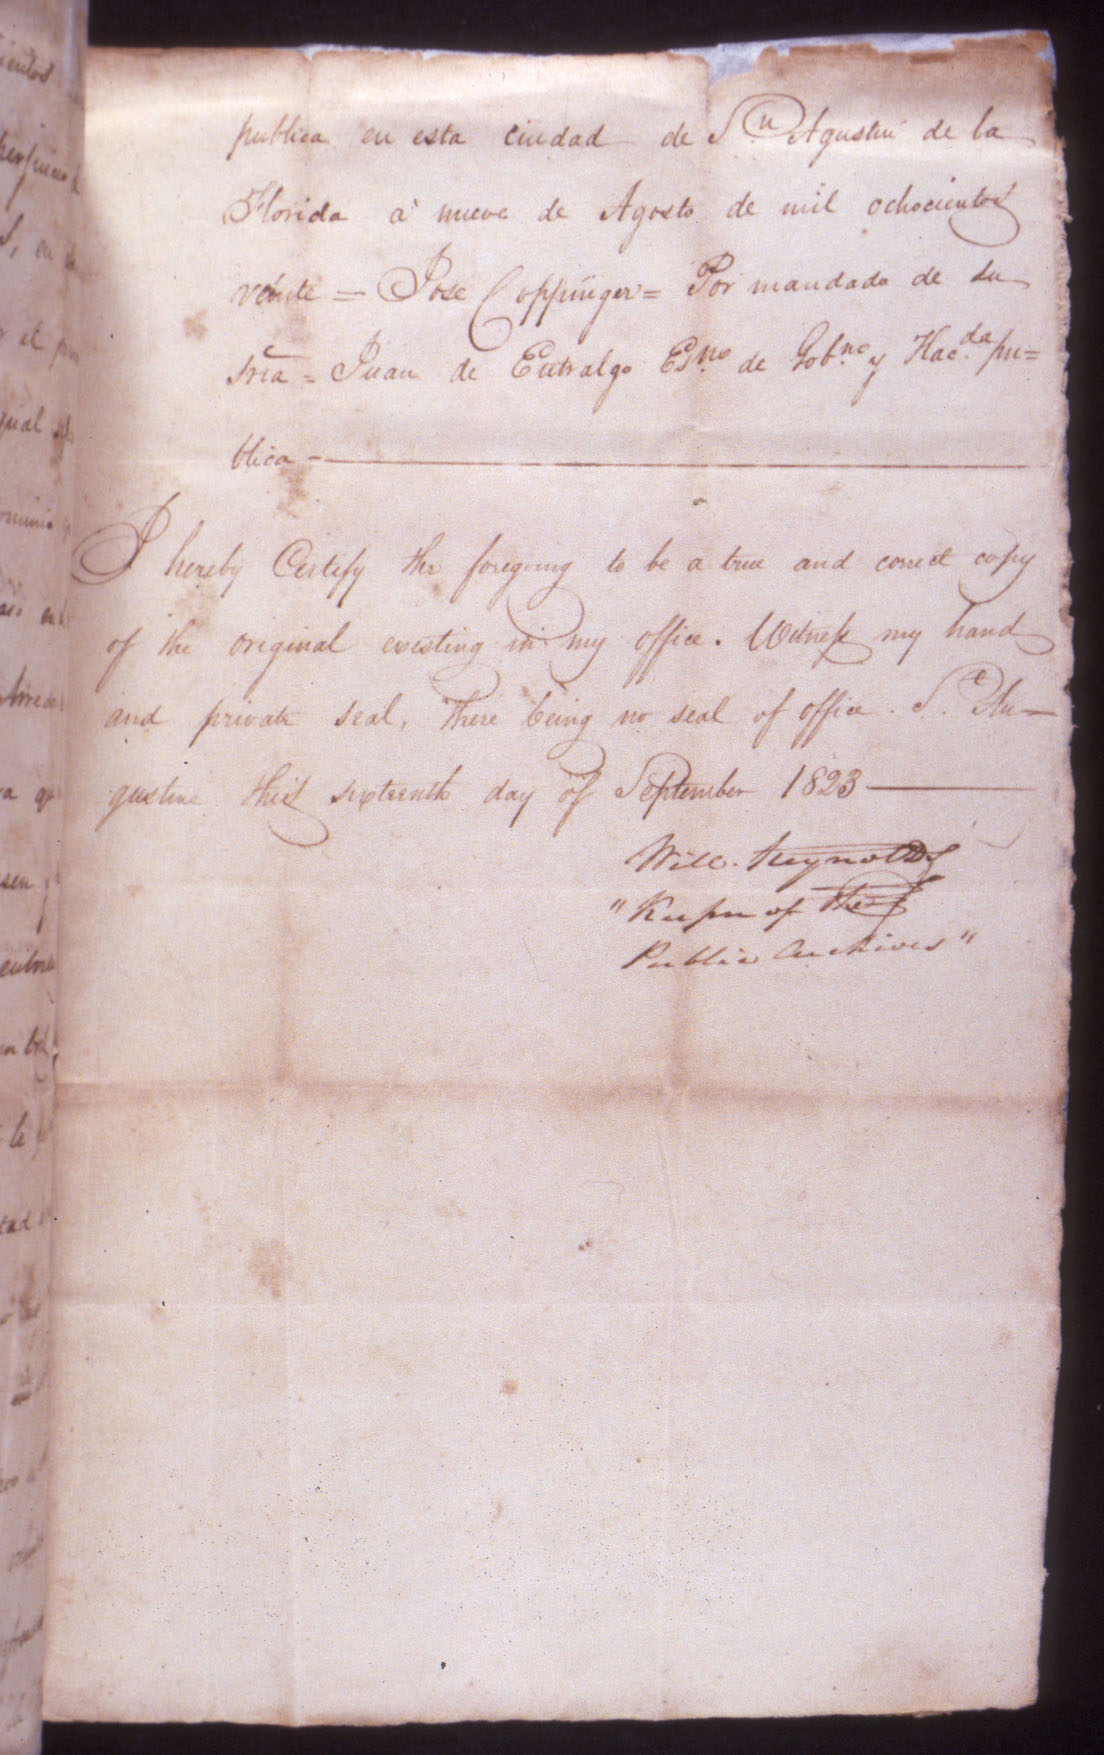 publica en esta ciudad de Sn. Agustin de la
Florida à nueve de Agosto de mil ochocientos
veinte = Jose Coppinger = Por mandado de su
sria = Juan de Entralgo Esno. de Gobno. y Hacda. pu=
blica -
I hereby Certify the foregoing to be a true and correct copy
of the original existing in my office. Witness my hand
and private seal, there being no seal of office. St. Au-
gustine this sixteenth day of September 1823
Will. Reynolds
"Keeper of the
Public Archives"